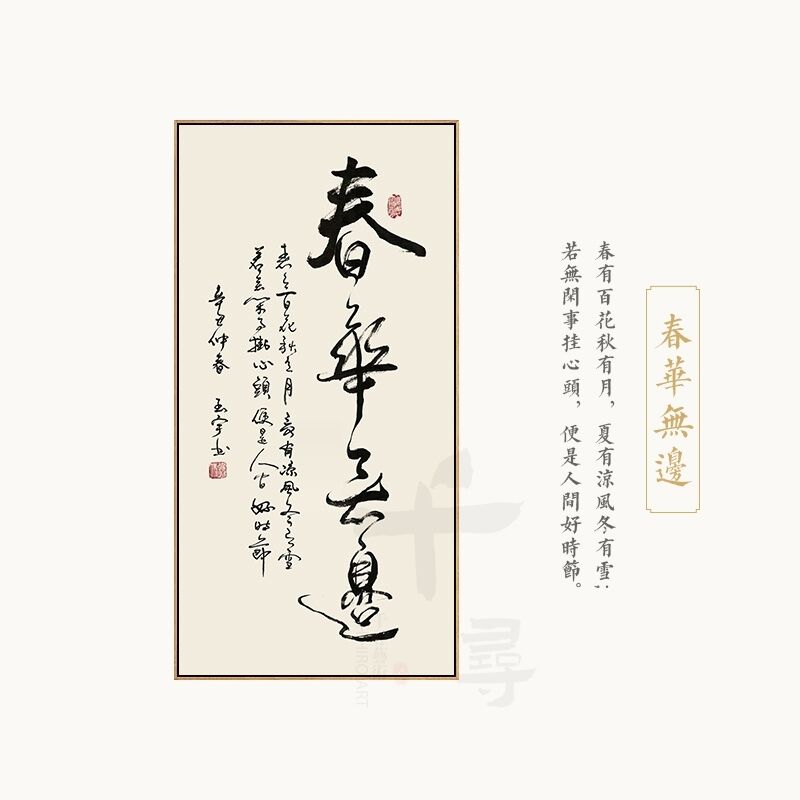 春華無邊
春有百花秋有月，夏有涼風冬有雪，
若無閑事挂心頭，便是人間好時節。
春華无邊
春有百花秋有月 夏有凉風冬有雪
若無閑事掛心頭 便是人間好時節
辛丑仲春 玉宇书
千尋